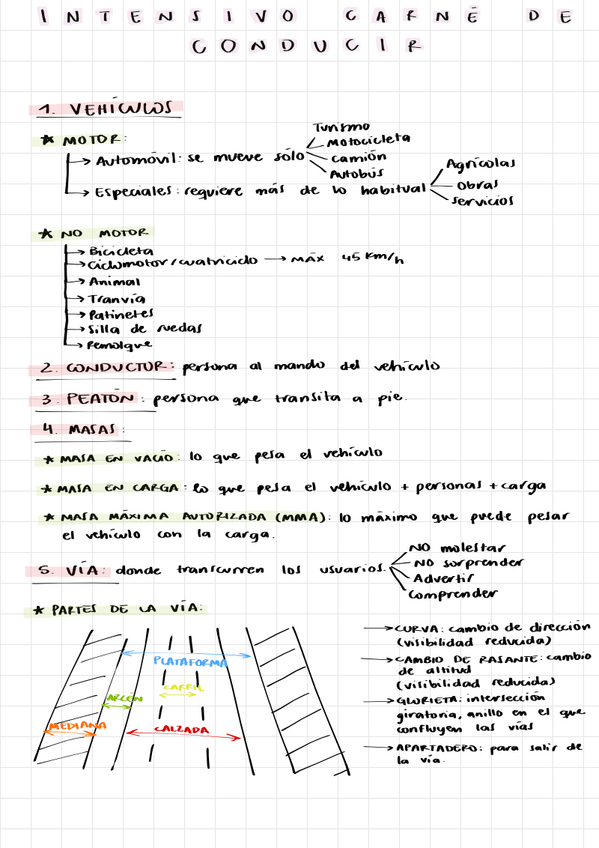 INTENSIVO CARNÉ DE
CONDUCIR
1. VEHÍCULOS
★ MOTOR:
→ Automóvil: se mueve sólo
Turismo
Motocicleta
Camión
Autobús
→ Especiales: requiere más de lo habitual
Agrícolas
Obras
Servicios
★ NO MOTOR
→ Bicicleta
→ Ciclomotor/cuatriciclo → MÁX 45 Km/h
→ Animal
→ Tranvía
→ Patinetes
→ Silla de ruedas
→ Remolque
2. CONDUCTOR: persona al mando del vehículo
3. PEATÓN: persona que transita a pie.
4. MASAS:
★ MASA EN VACÍO: lo que pesa el vehículo
★ MASA EN CARGA: lo que pesa el vehículo + personas + carga
★ MASA MÁXIMA AUTORIZADA (MMA): lo máximo que puede pesar
el vehículo con la carga.
5. VÍA: donde transcurren los usuarios.
NO molestar
NO sorprender
Advertir
Comprender
★ PARTES DE LA VÍA:
PLATAFORMA
CARRIL
ARCÉN
MEDIANA
CALZADA
→ CURVA: cambio de dirección
(visibilidad reducida)
→ CAMBIO DE RASANTE: cambio
de altitud
(visibilidad reducida)
→ GLORIETA: intersección
giratoria, anillo en el que
confluyen las vías
→ APARTADERO: para salir de
la vía.